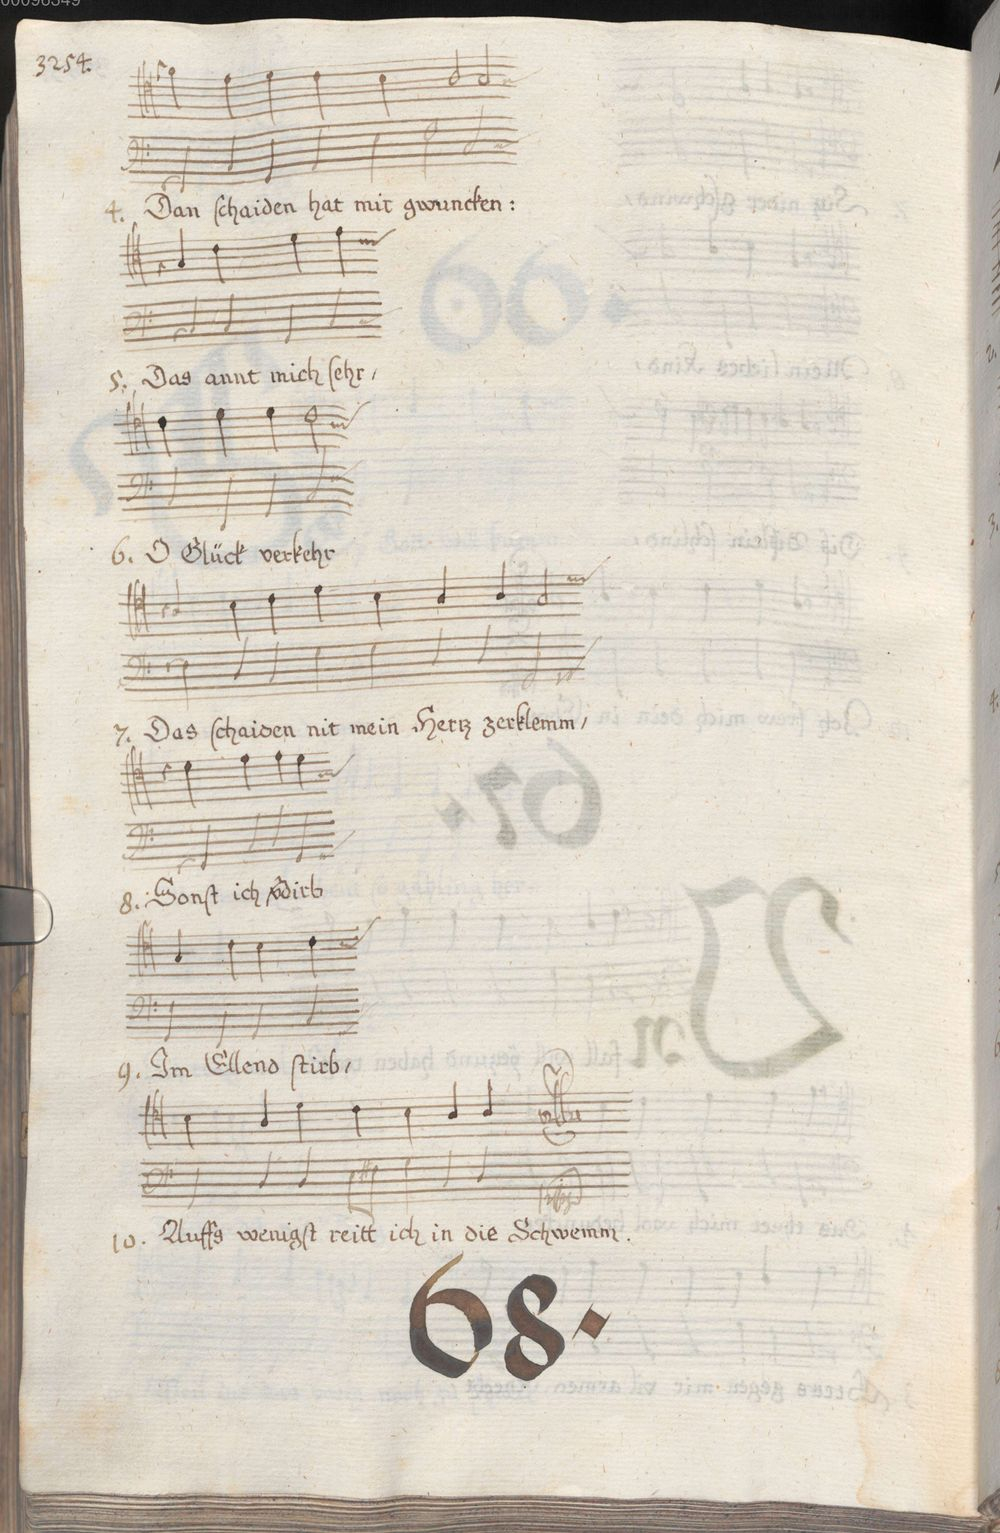 00096349
3254.
4. Dan schaiden hat mir gwuncken:
5. Das annt mich sehr/
6. O Glück verkehr
7. Das schaiden nit mein Hertz zerklemm/
8. Sonst ich
9. Im Ellend stirb/
10. Auffs wenigst reitt ich in die Schwemm.
68.